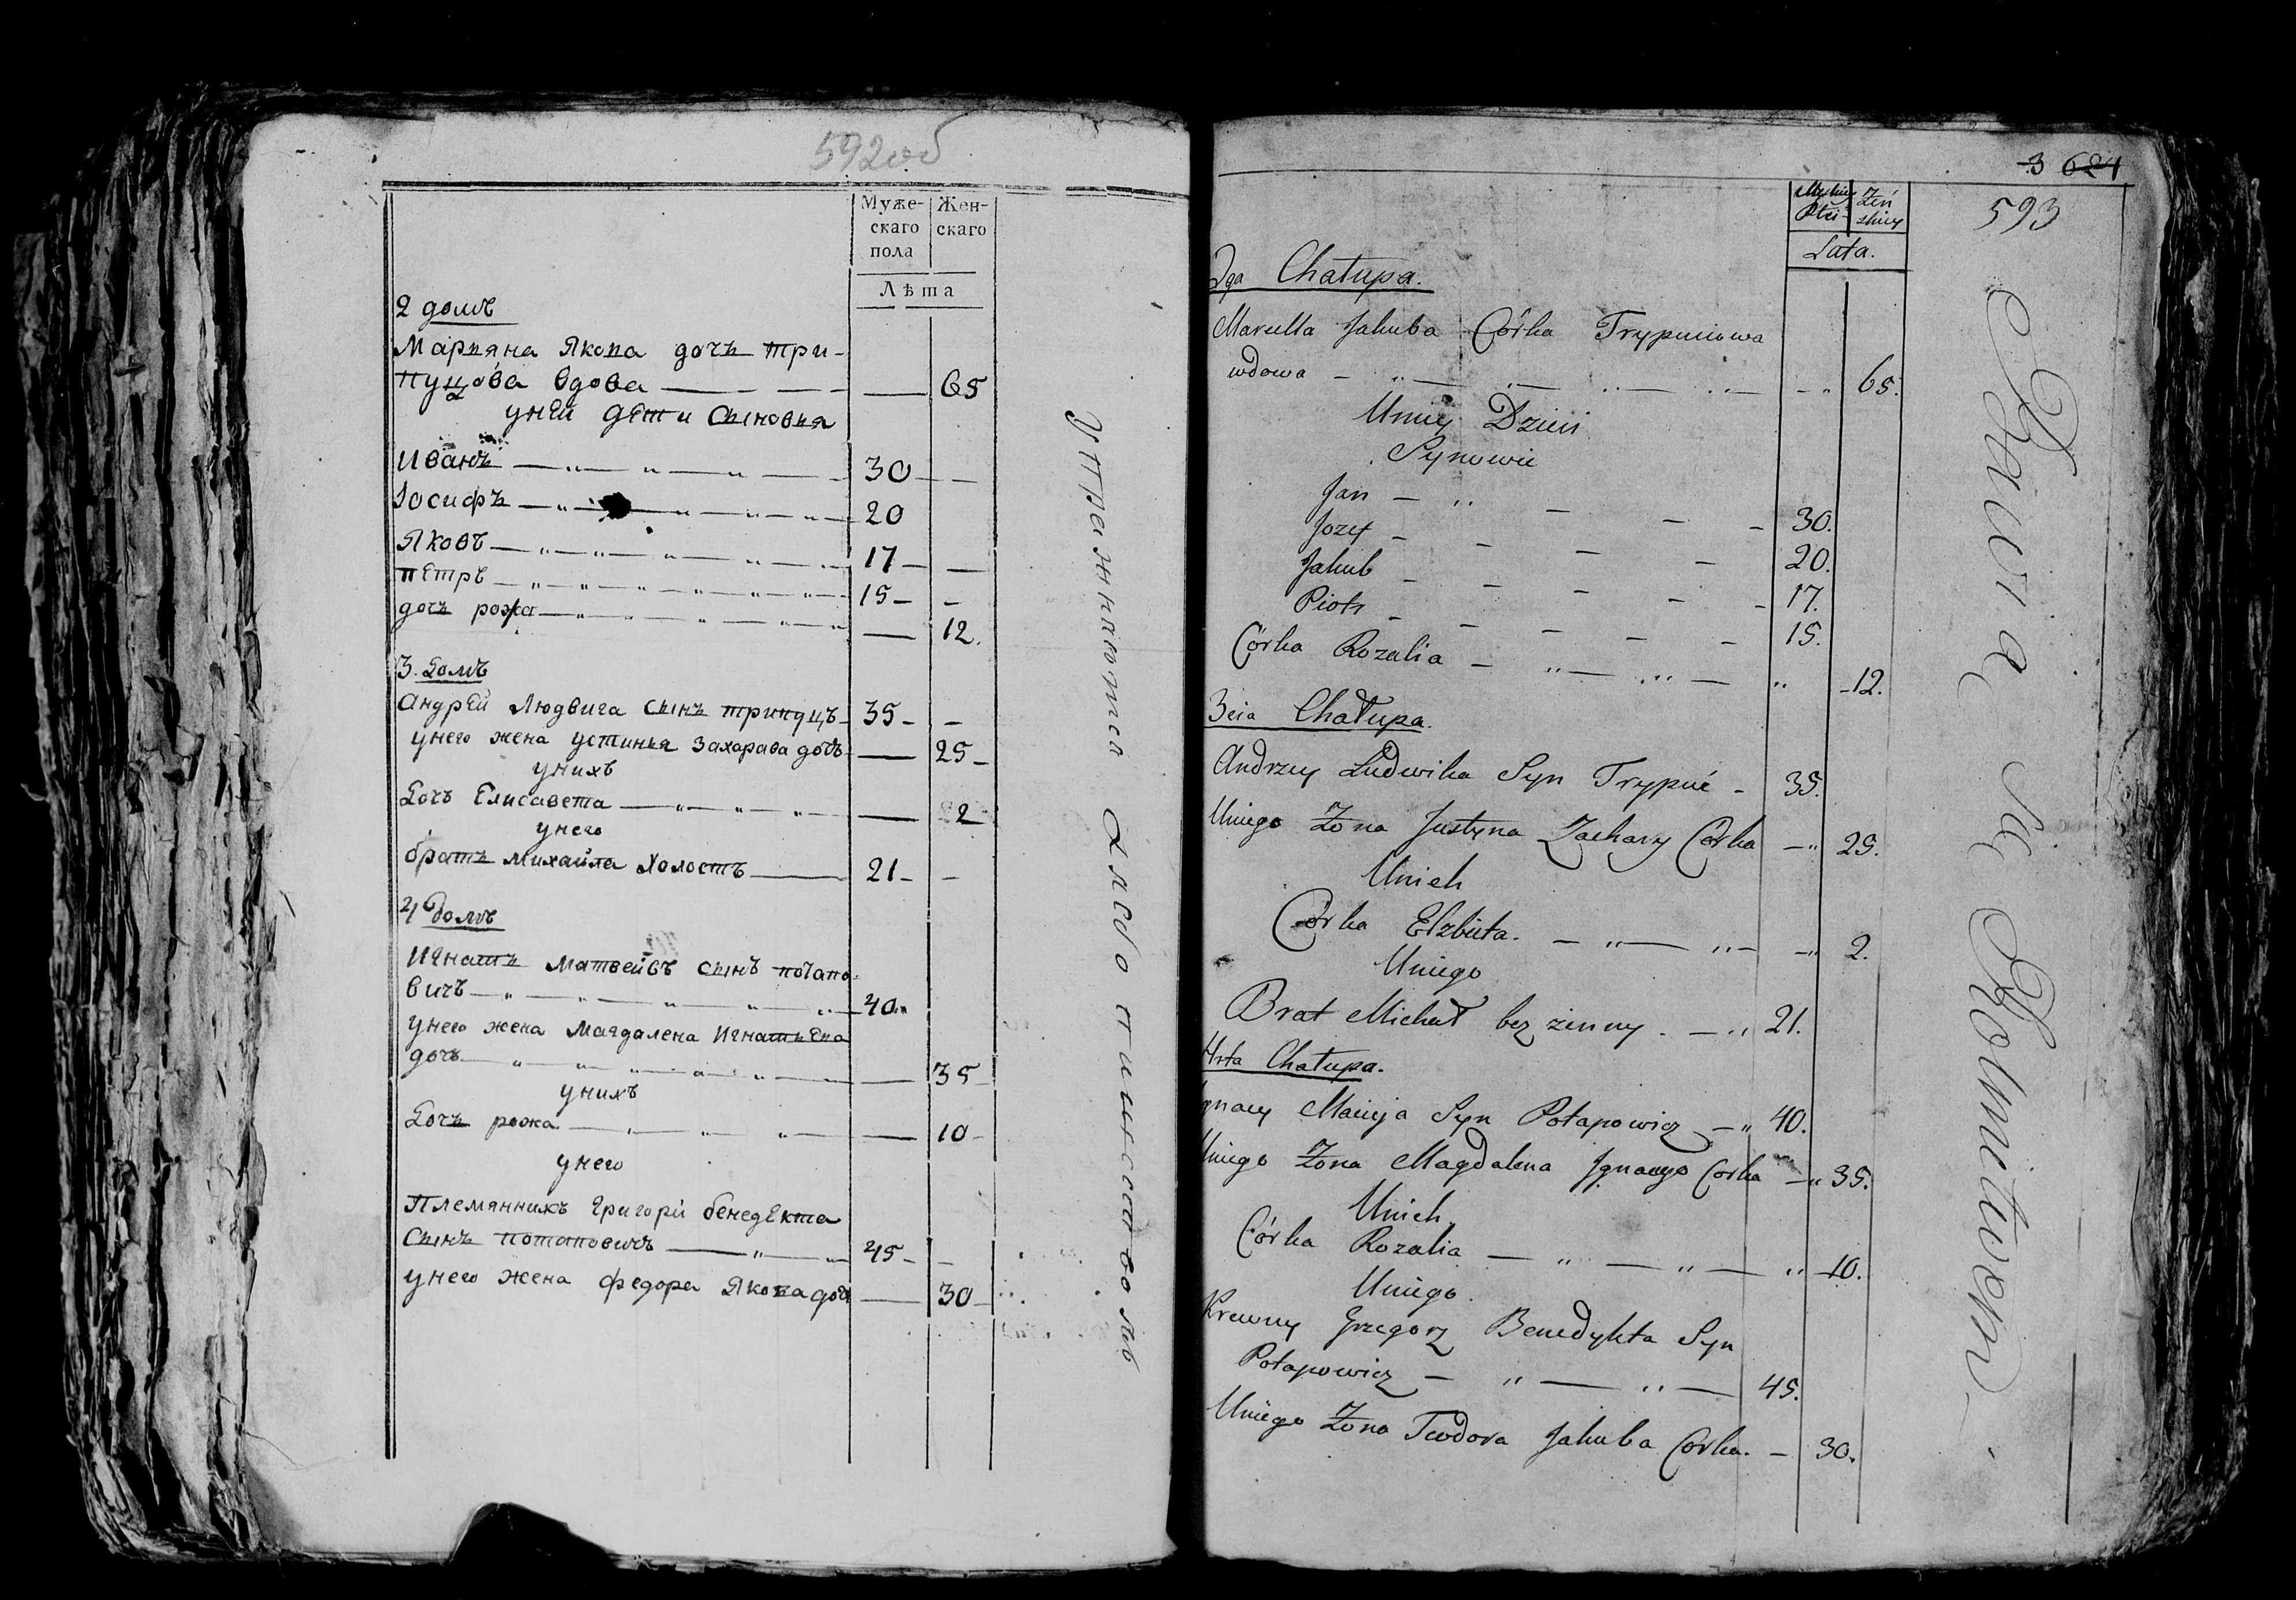 592об
Муже- Жен-
скаго скаго
пола
Лѣта
2 домъ
Марпяна Якопа дочь три-
пуцова вдова 65
уней дети сыновья
Иванъ 30
Іосифъ 20
Яковъ 17
петръ 15
дочь рожа 12.
3. домъ
Андрей Людвига сынъ трипуцъ 35
унего жена устинья Захарава дочь 25
унихъ
Дочь Елисавета 2
унего
братъ михайла холостъ 21
4 домъ
Игнатъ матвейвъ сынъ потапо-
вичъ 40
Унего жена магдалена Игнатьева
дочь 35
унихъ
Дочь рожа 10
унего
Племянникъ григори бенедекта
сынъ потаповичъ 45
унего жена федора Якопа доч 30
3 621
593
Męskiey Żeń
Płci skiey
Lata.
2ga Chałupa.
Maryella Jakuba Córka Trypuciowa
wdowa 65.
Uniey Dzieci
Synowie
Jan 30.
Jozef 20.
Jakub 17.
Piotr 15.
Córka Rozalia 12.
3cia Chałupa.
Andrzey Ludwika Syn Trypuć 35.
Uniego Żona Justyna Zachary Córka 25.
Unich
Córka Elzbieta. 2.
Uniego
Brat Michał bez zenny. 21.
4rta Chałupa.
Ignacy Macieja Syn Potapowicz 40.
Uniego Żona Magdalena Jgnacego Corka 35.
Unich
Córka Rozalia 10.
Uniego
Krewny Grzegorz Benedykta Syn
Potapowicz 45.
Uniego Żona Teodora Jakuba Corka. 30.